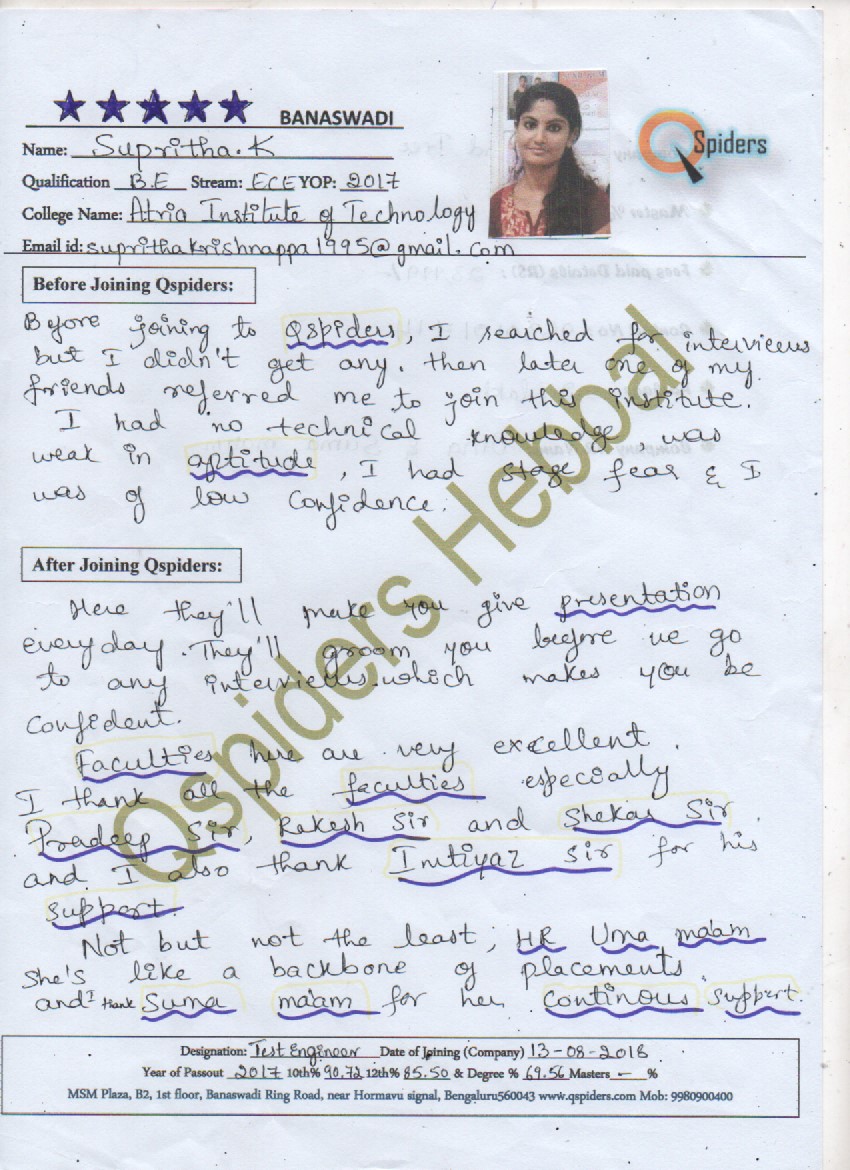 BANASWADI
Qspiders
Name: Supritha.K
Qualification B.E Stream: ECE YOP: 2017
College Name: Atria Institute of Technology
Email id: suprithakrishnappa1995@gmail.com
Before Joining Qspiders:
Before joining to Qspiders, I searched for interviews
but I didn't get any. then later one of my
friends referred me to join this institute.
I had no technical knowledge was
weak in aptitude, I had stage fear & I
was of low confidence.
After Joining Qspiders:
Here they'll make you give presentation
everyday. They'll groom you before we go
to any interviews.which makes you be
confident.
Faculties here are very excellent.
I thank all the faculties especially
Pradeep Sir, Rakesh Sir and Shekar Sir
and I also thank Imtiyaz Sir for his
support.
Not but not the least, HR Uma ma'am
She's like a backbone of placements.
and I thank Suma ma'am for her continous support.
Qspiders Hebbal
Designation: Test Engineer Date of Joining (Company) 13-08-2018
Year of Passout 2017 10th% 90.72 12th% 85.50 & Degree % 69.56 Masters - %
MSM Plaza, B2, 1st floor, Banaswadi Ring Road, near Hormavu signal, Bengaluru560043 www.qspiders.com Mob: 9980900400